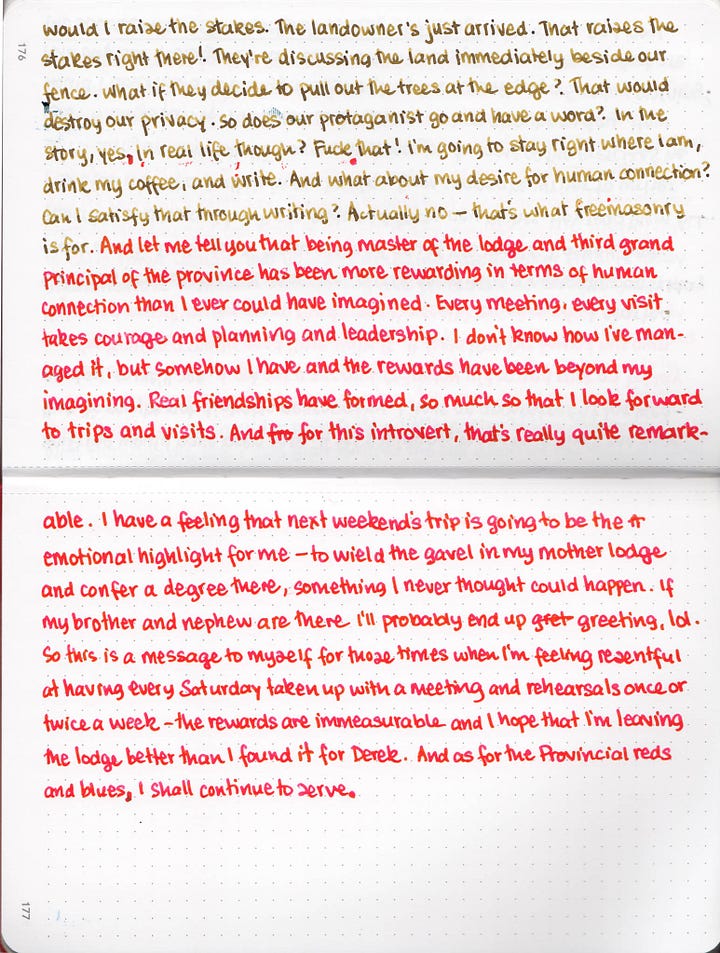 176
would I raise the stakes. The landowner's just arrived. That raises the
stakes right there! They're discussing the land immediately beside our
fence. What if they decide to pull out the trees at the edge? That would
destroy our privacy. So does our protaganist go and have a word? In the
story, yes, in real life though? Fuck that! I'm going to stay right where I am,
drink my coffee, and write. And what about my desire for human connection?
Can I satisfy that through writing? Actually no – that's what freemasonry
is for. And let me tell you that being master of the lodge and third grand
Principal of the province has been more rewarding in terms of human
connection than I ever could have imagined. Every meeting, every visit
takes courage and planning and leadership. I don't know how I've man-
aged it, but somehow I have and the rewards have been beyond my
imagining. Real friendships have formed, so much so that I look forward
to trips and visits. And fro for this introvert, that's really quite remark-
able. I have a feeling that next weekend's trip is going to be the
emotional highlight for me – to wield the gavel in my mother lodge
and confer a degree there, something I never thought could happen. If
my brother and nephew are there I'll probably end up gret greeting, lol.
So this is a message to myself for those times when I'm feeling resentful
at having every Saturday taken up with a meeting and rehearsals once or
twice a week – the rewards are immeasurable and I hope that I'm leaving
the lodge better than I found it for Derek. And as for the Provincial reds
and blues, I shall continue to serve.
177